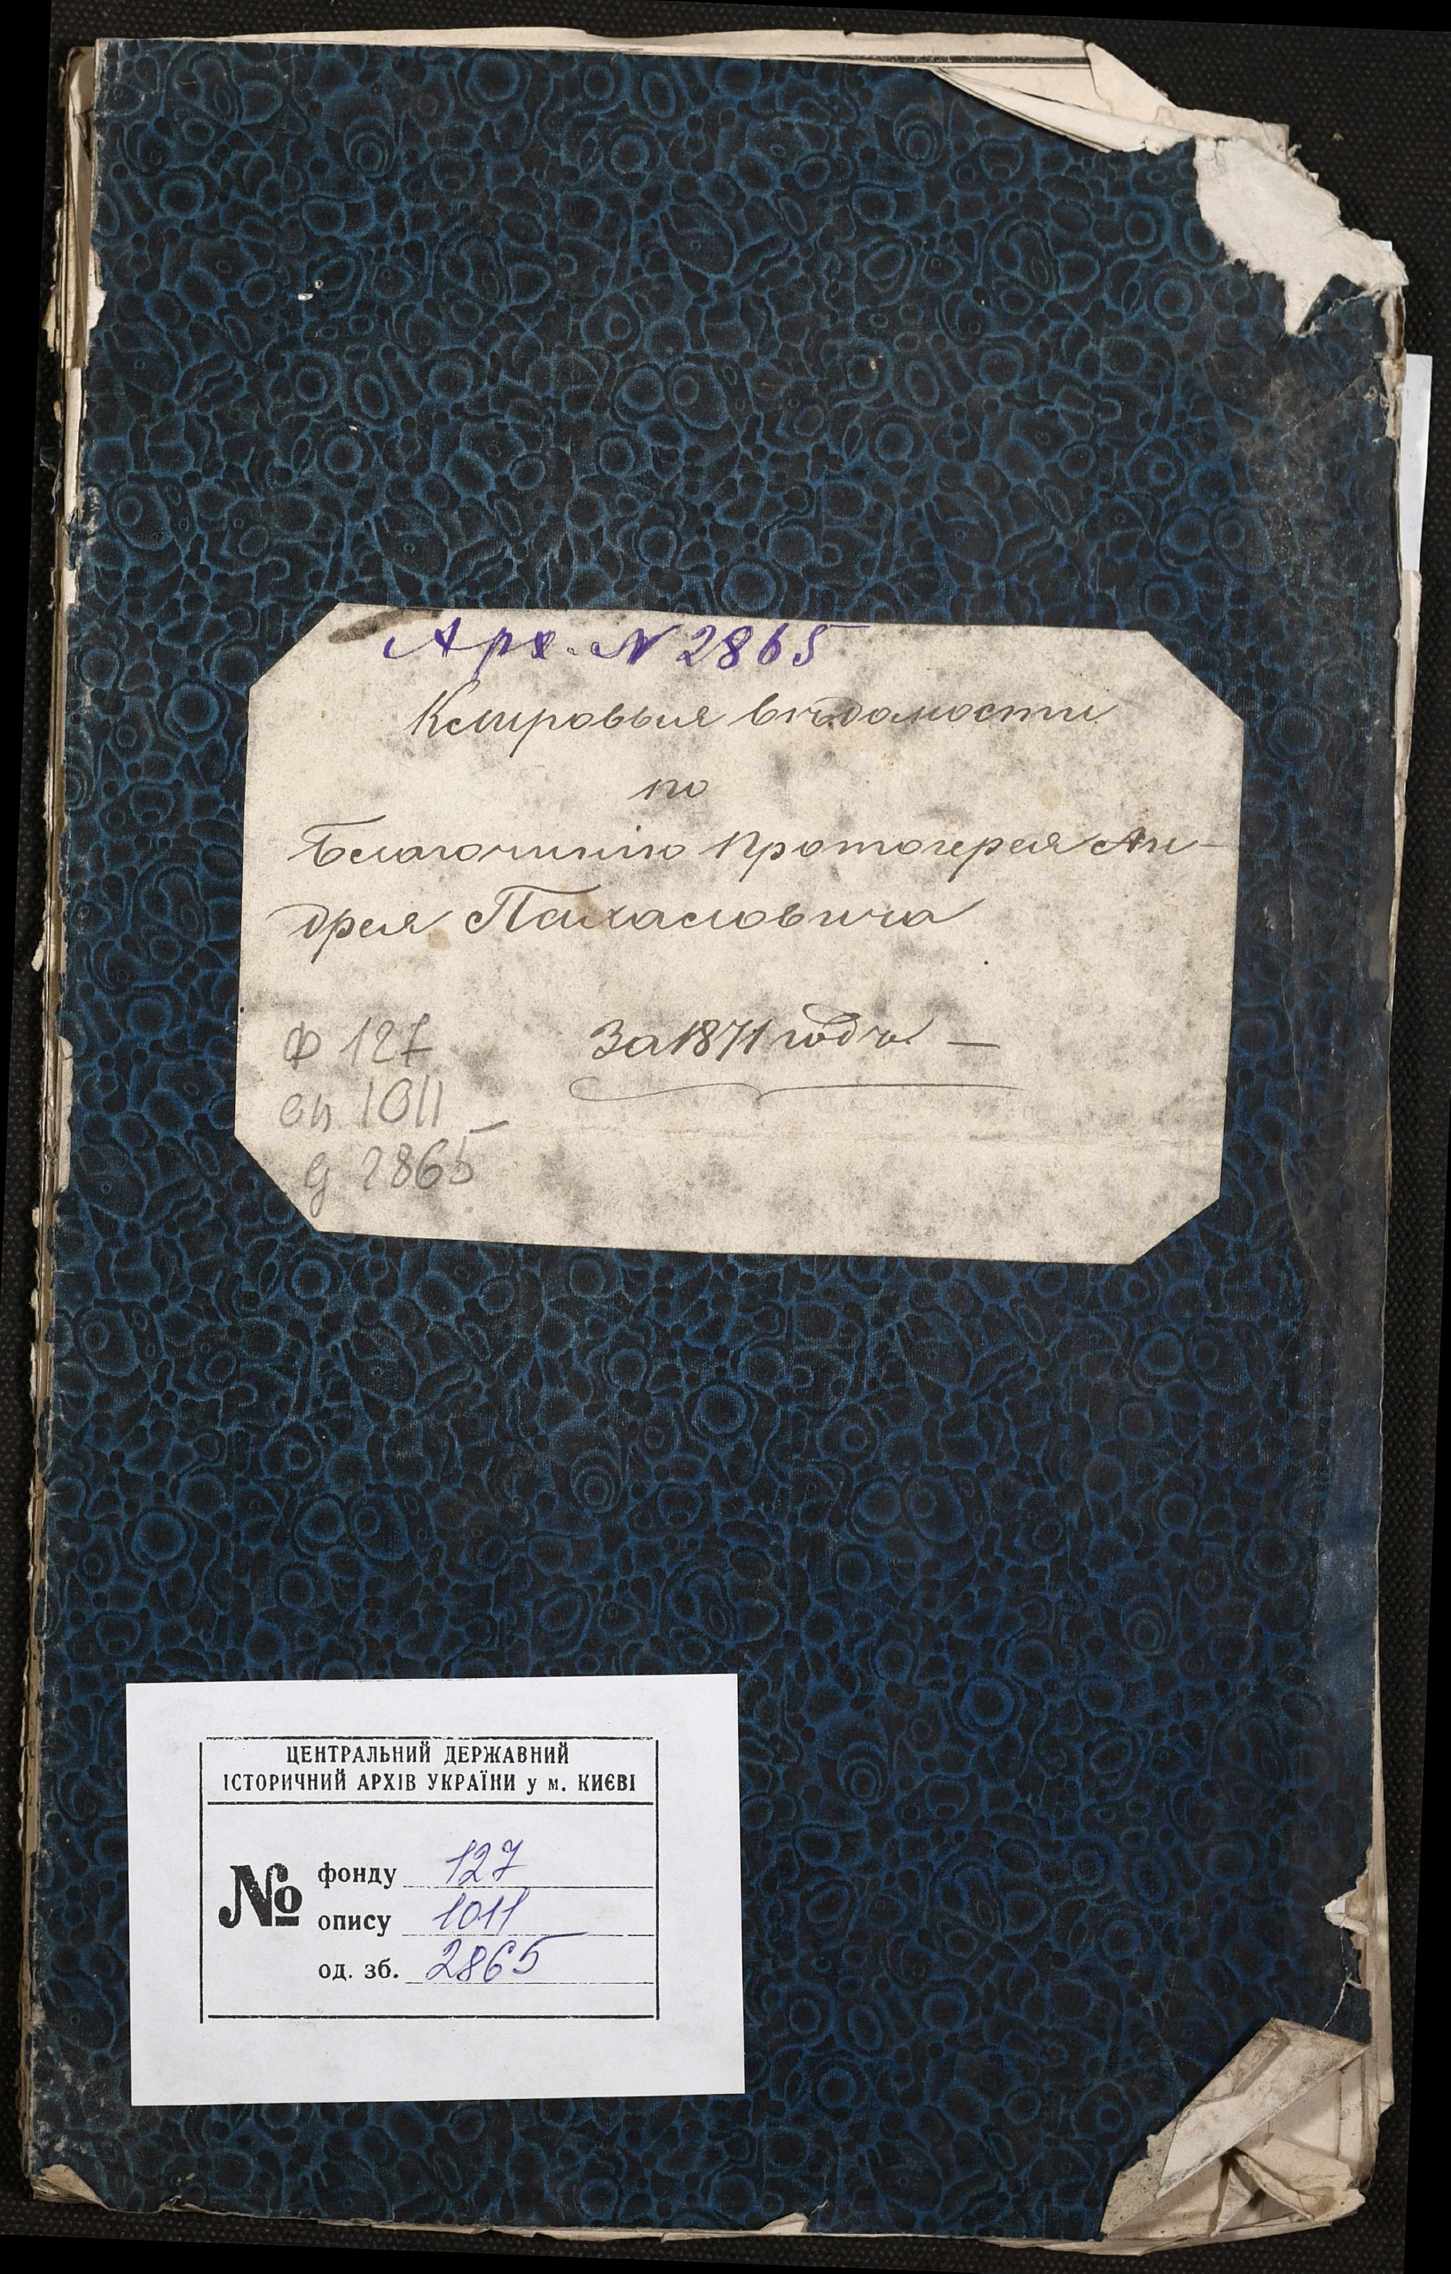 Арх. N 2865
Клировыя вѣдомости
по
Благочинію Протоіерея Ан-
дрея Пахаловича
За 1871 годъ —
Ф 127
оп 1011
д 2865
ЦЕНТРАЛЬНИЙ ДЕРЖАВНИЙ
ІСТОРИЧНИЙ АРХІВ УКРАЇНИ у м. КИЄВІ
№
фонду 127
опису 1011
од. зб. 2865